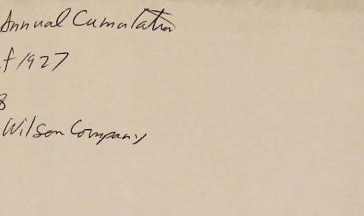 Annual Cumulation
f 1927
8
Wilson Company